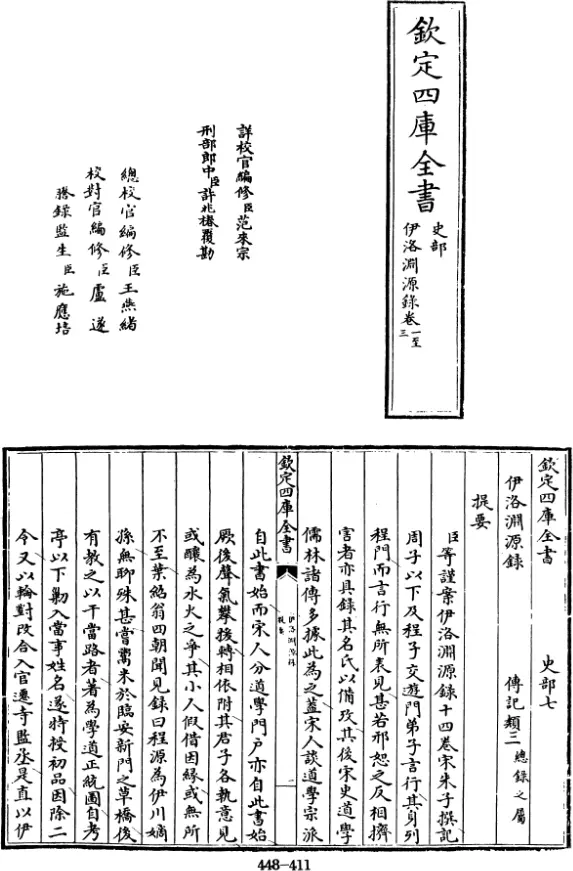 欽定四庫全書
史部
伊洛淵源錄卷一至三
詳校官編修臣范來宗
刑部郎中臣許兆椿覆勘
總校官編修臣王燕緒
校對官編修臣盧遂
謄錄監生臣施應培
欽定四庫全書 史部七
伊洛淵源錄 傳記類三總錄之屬
提要
臣等謹案伊洛淵源錄十四卷宋朱子撰記
周子以下及程子交遊門弟子言行其身列
程門而言行無所表見甚若邢恕之反相擠
害者亦具錄其名氏以備攷其後宋史道學
儒林諸傳多據此為之蓋宋人談道學宗派
欽定四庫全書
伊洛淵源錄
提要
自此書始而宋人分道學門戶亦自此書始
厥後聲氣攀援轉相依附其君子各執意見
或釀為水火之爭其小人假借因緣或無所
不至葉紹翁四朝聞見錄曰程源為伊川嫡
孫無聊殊甚嘗鬻米於臨安新門之草橋後
有教之以干當路者著為學道正統圖自考
亭以下剿入當事姓名遂特授初品因除二
令又以輪對改合入官遷寺監丞是直以伊
448-411